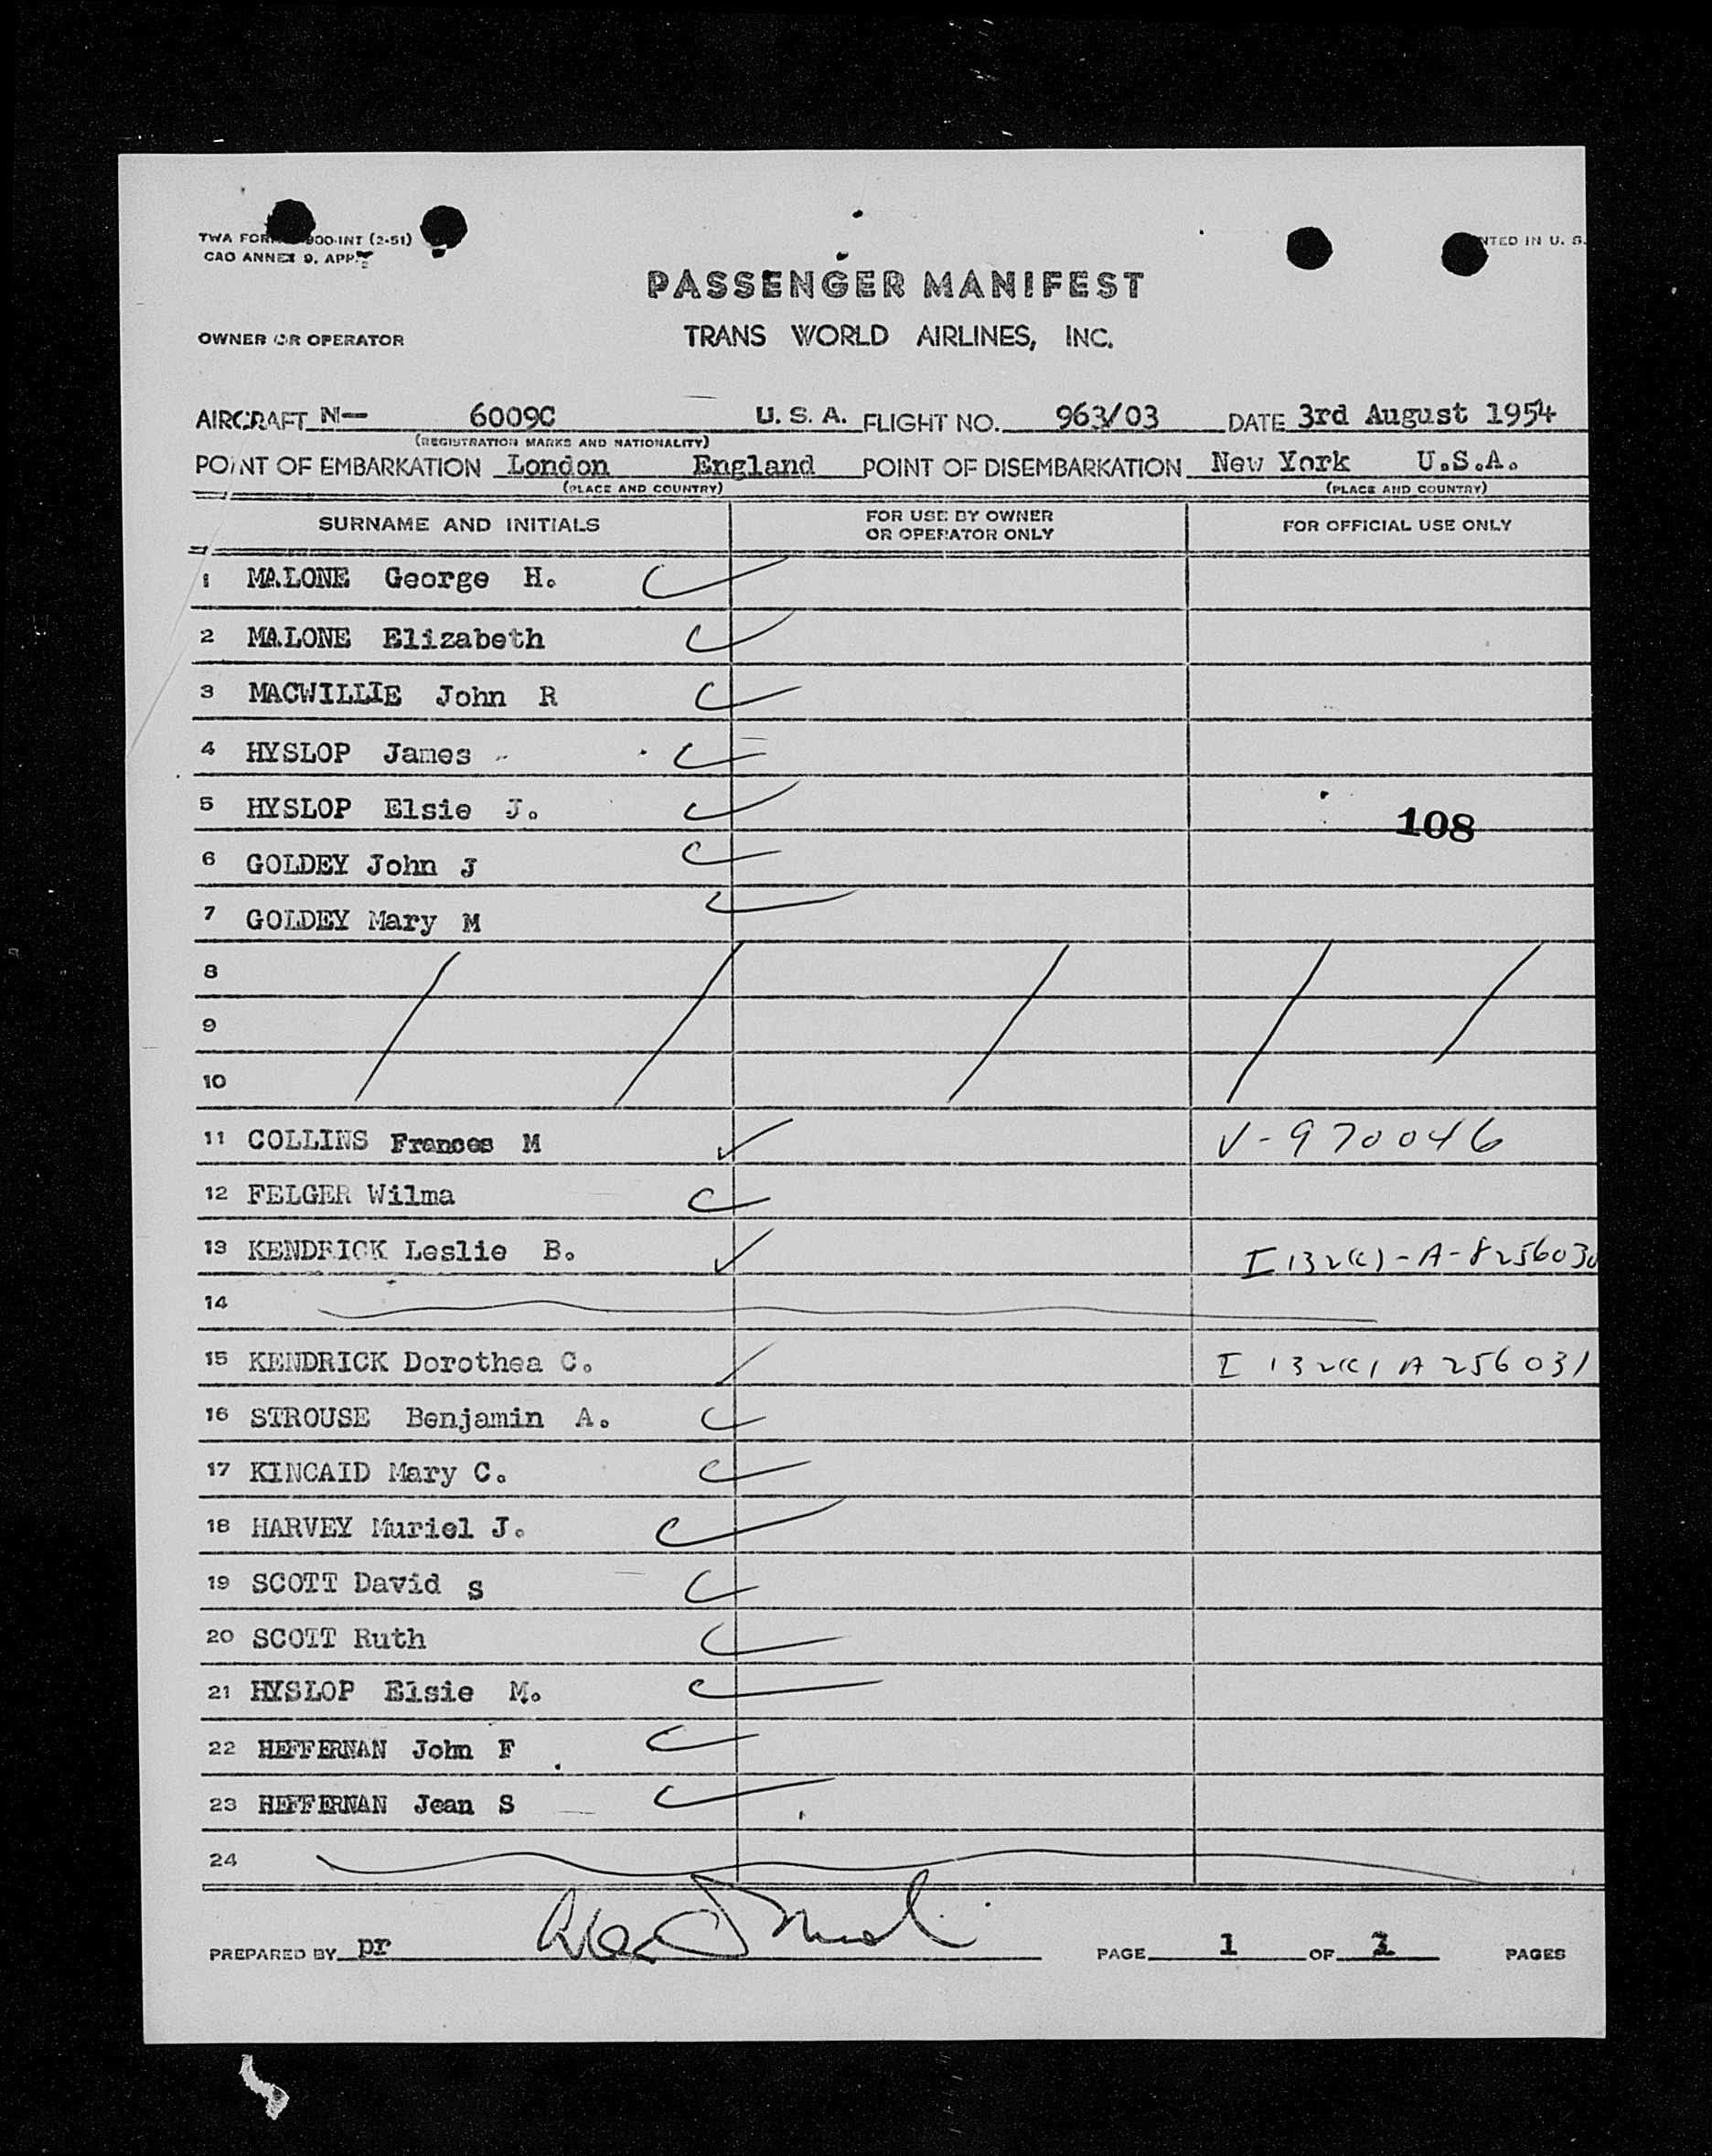 TWA FORM 900-INT (2-51)
CAO ANNEX 9, APP.
NTED IN U. S.
PASSENGER MANIFEST
OWNER OR OPERATOR TRANS WORLD AIRLINES, INC.
AIRCRAFT N— 6009C U. S. A. FLIGHT NO. 963/03 DATE 3rd August 1954
(REGISTRATION MARKS AND NATIONALITY)
POINT OF EMBARKATION London England POINT OF DISEMBARKATION New York U.S.A.
(PLACE AND COUNTRY) (PLACE AND COUNTRY)
SURNAME AND INITIALS FOR USE BY OWNER OR OPERATOR ONLY FOR OFFICIAL USE ONLY
1 MALONE George H.
2 MALONE Elizabeth
3 MACWILLIE John R
4 HYSLOP James
5 HYSLOP Elsie J.
108
6 GOLDEY John J
7 GOLDEY Mary M
8
9
10
11 COLLINS Frances M V-970046
12 FELGER Wilma
13 KENDRICK Leslie B. I 132(c)-A-8256030
14
15 KENDRICK Dorothea C. I 132(c) A 256031
16 STROUSE Benjamin A.
17 KINCAID Mary C.
18 HARVEY Muriel J.
19 SCOTT David S
20 SCOTT Ruth
21 HYSLOP Elsie M.
22 HEFFERNAN John F
23 HEFFERNAN Jean S
24
PREPARED BY pr PAGE 1 OF PAGES